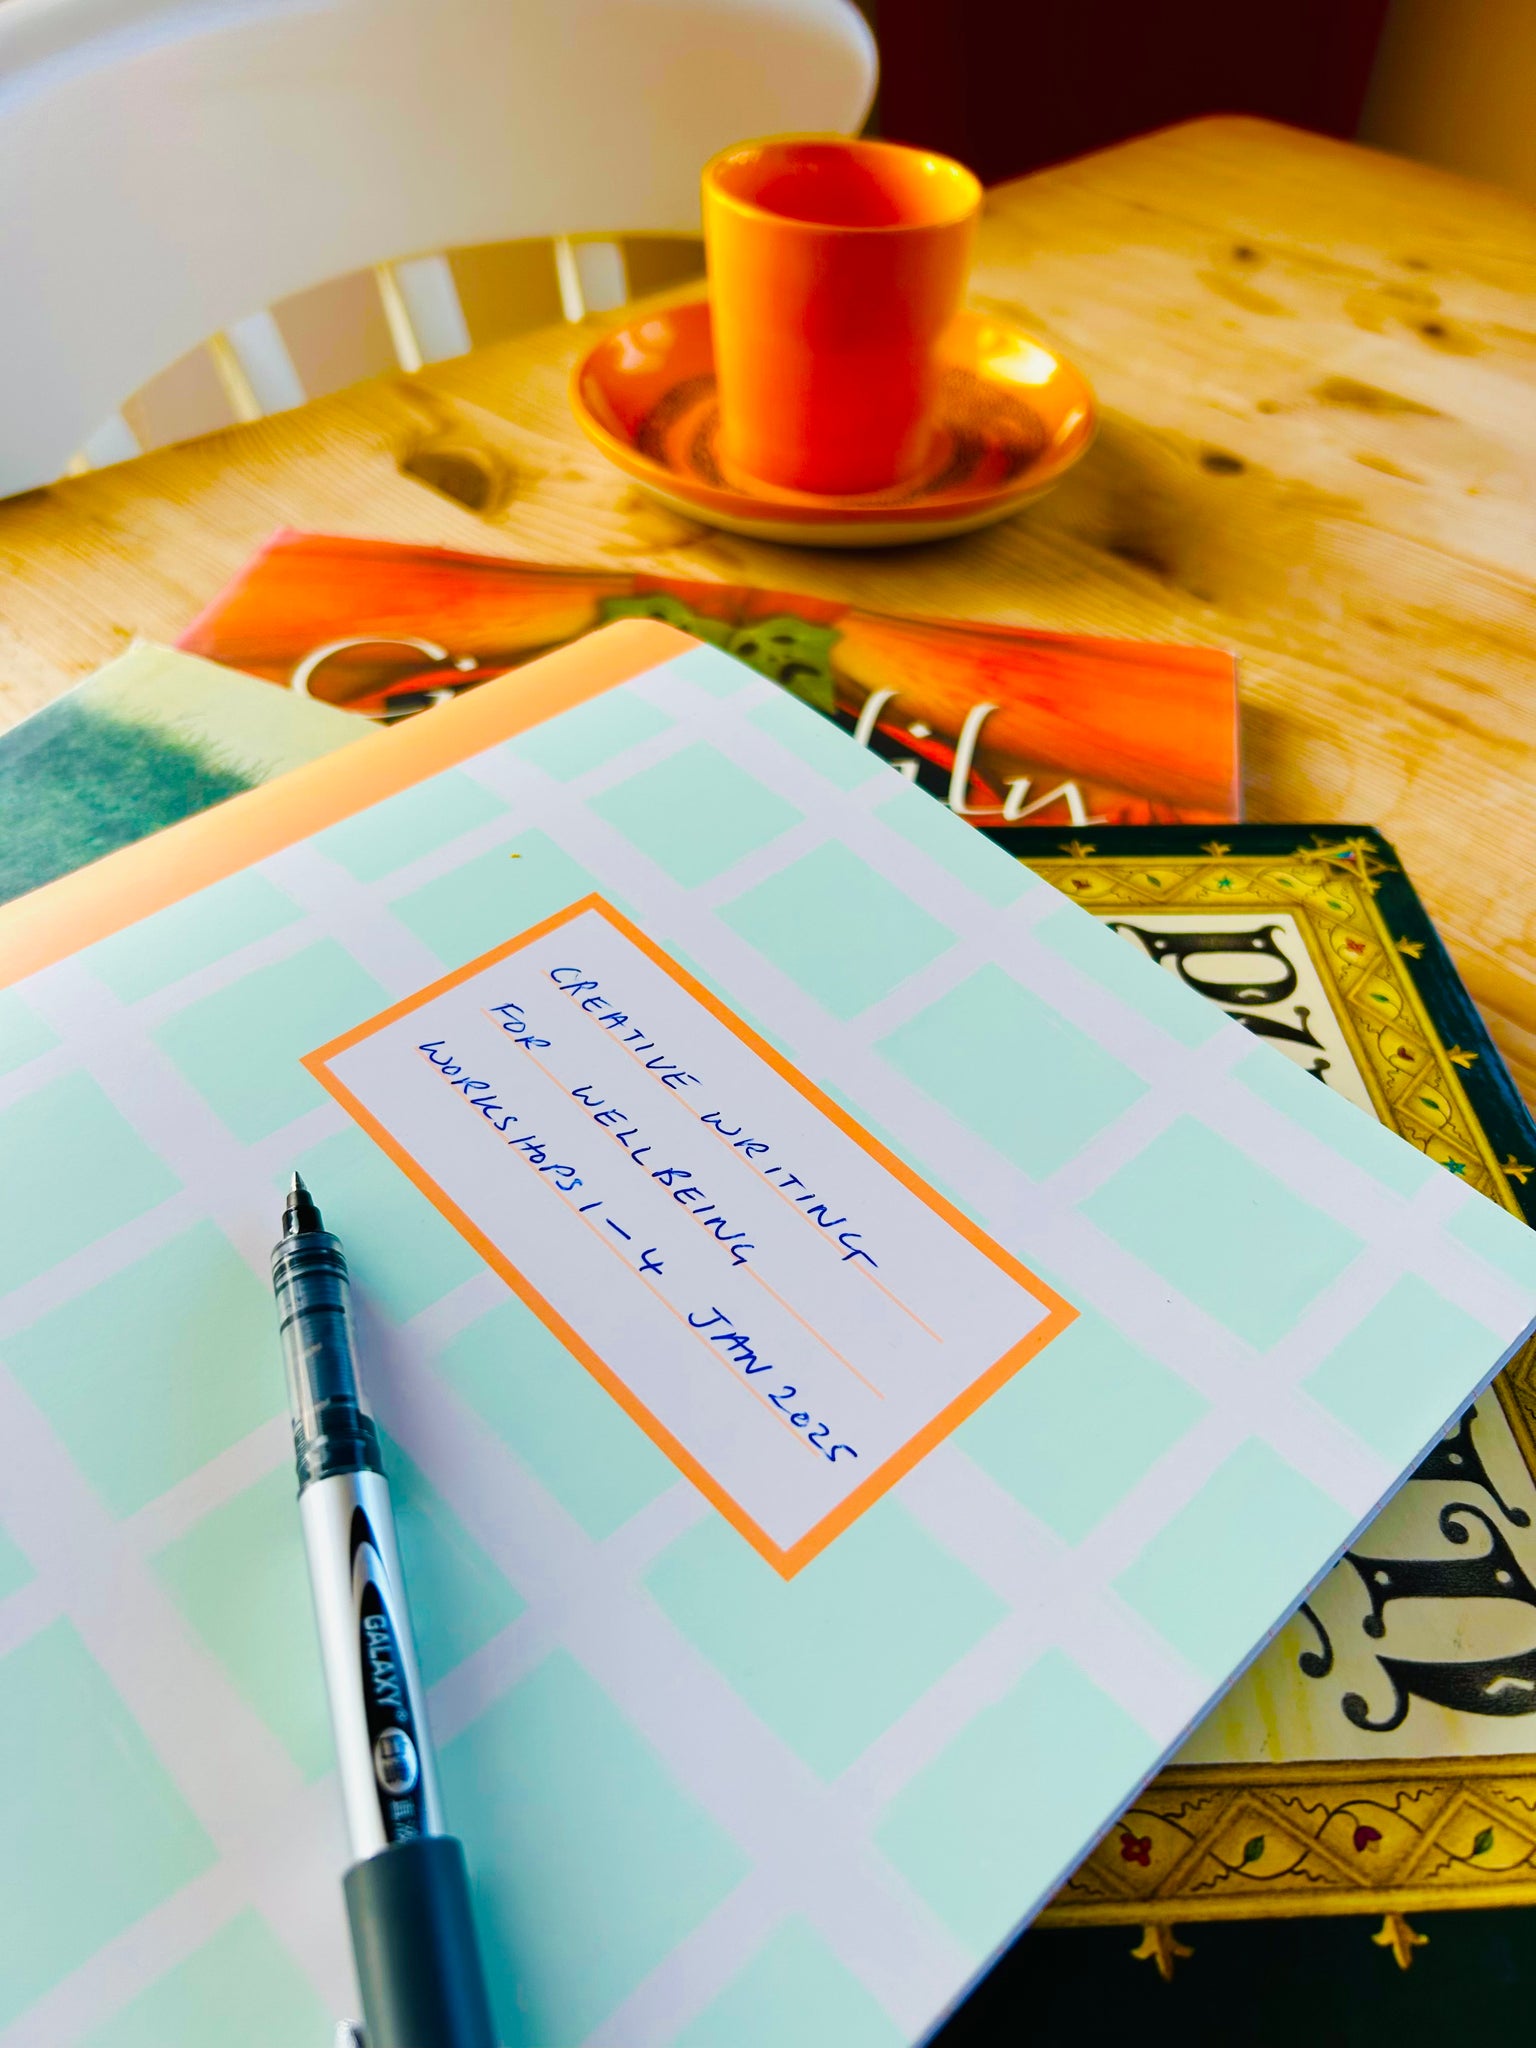 CREATIVE WRITING
FOR WELLBEING
WORKSHOPS 1-4 JAN 2025
GALAXY®